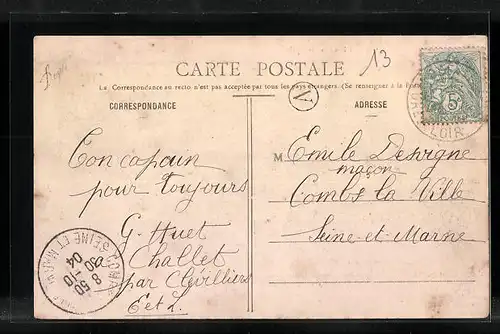 13
CARTE POSTALE
La Correspondance au recto n'est pas acceptée par tous les pays étrangers. (Se renseigner à la
CORRESPONDANCE
ADRESSE
V
Ton copain
pour toujours
G Huet
Challet
par Clévilliers
E et L.
M Emile Desvigne
maçon
Combs la Ville
Seine-et-Marne
5
LOIR
SEINE ET MARNE
8 50
30-10
04